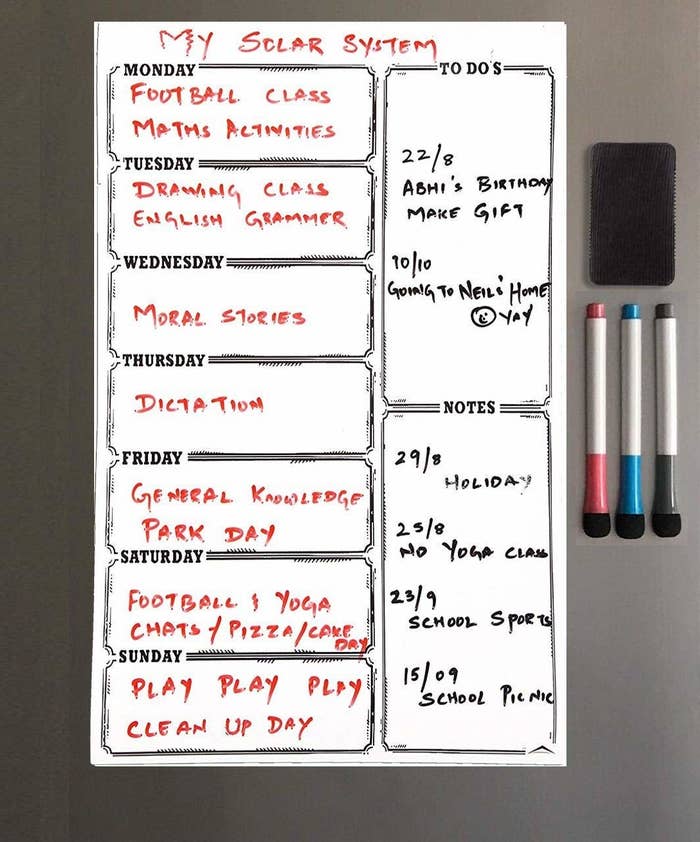 MY SOLAR SYSTEM
MONDAY
FOOTBALL CLASS
MATHS ACTIVITIES
TUESDAY
DRAWING CLASS
ENGLISH GRAMMER
WEDNESDAY
MORAL STORIES
THURSDAY
DICTATION
FRIDAY
GENERAL KNOWLEDGE
PARK DAY
SATURDAY
FOOTBALL & YOGA
CHATS / PIZZA/CAKE
DAY
SUNDAY
PLAY PLAY PLAY
CLEAN UP DAY
TO DO'S
22/8
ABHI'S BIRTHDAY
MAKE GIFT
10/10
GOING TO NEIL'S HOME
YAY
NOTES
29/8
HOLIDAY
25/8
NO YOGA CLASS
23/9
SCHOOL SPORTS
15/09
SCHOOL PICNIC